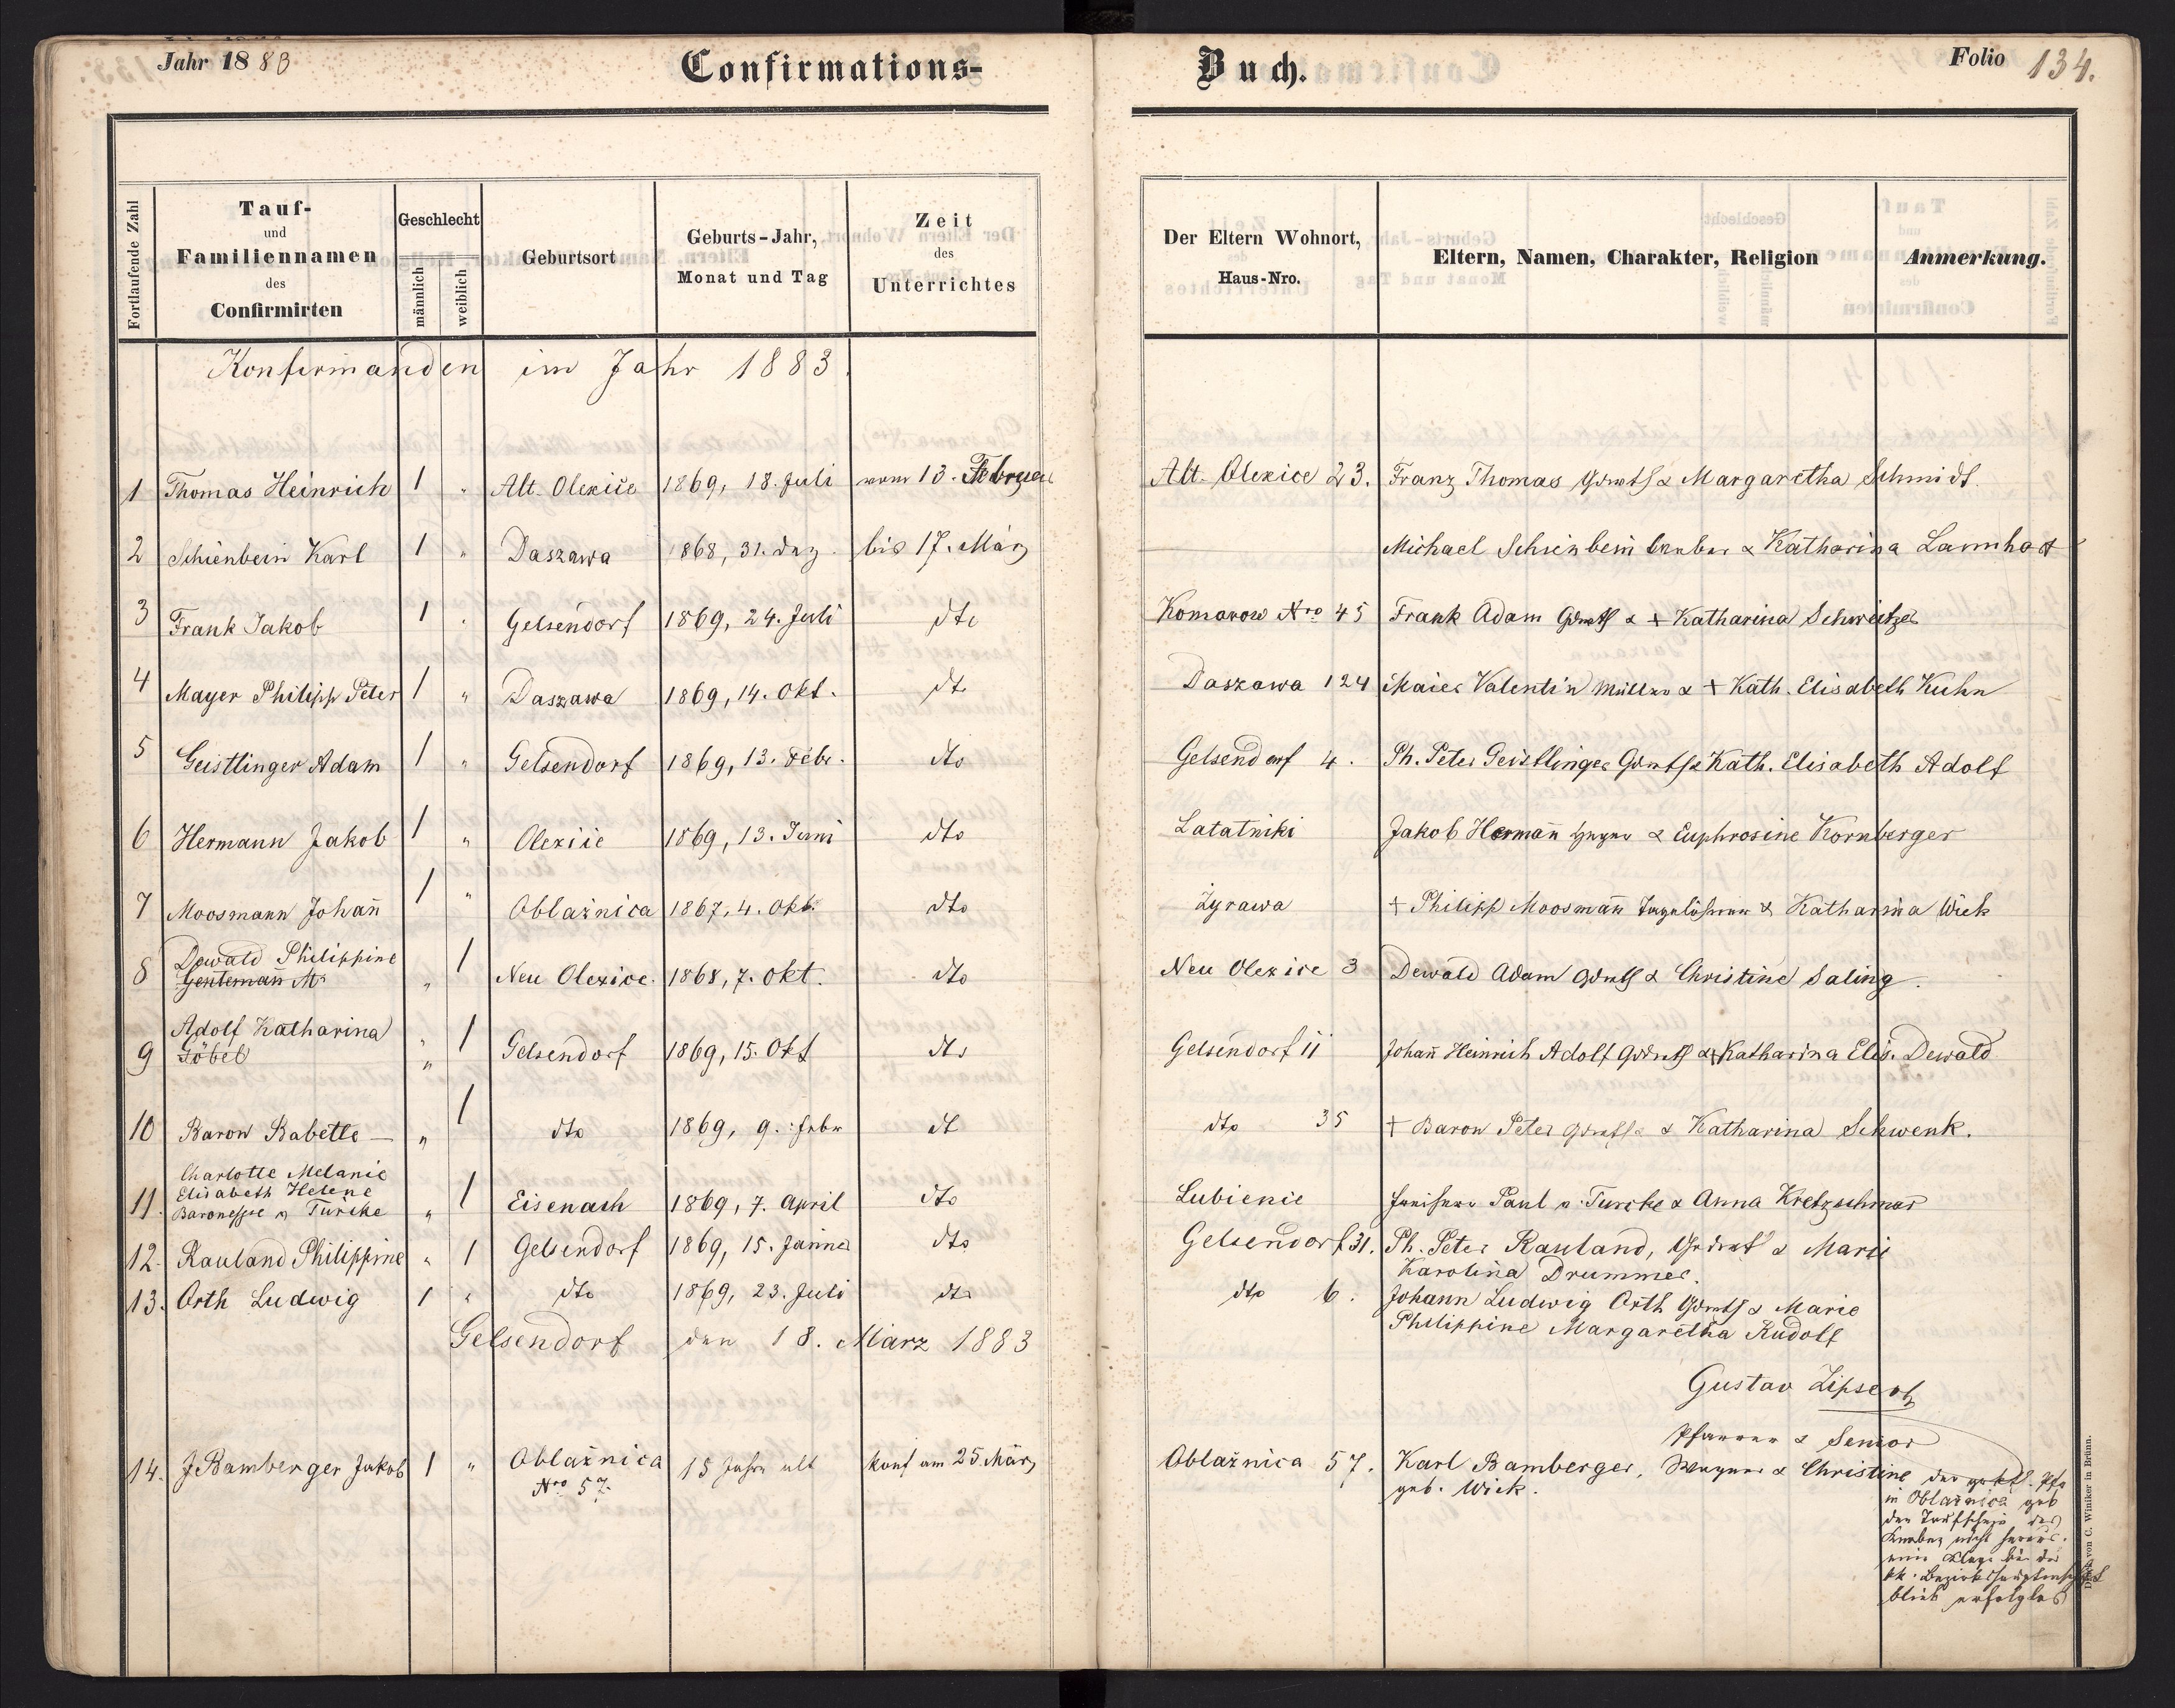 Jahr 1883
Confirmations-
Buch.
Folio 134.
Fortlaufende Zahl
Tauf-
und
Familiennamen
des
Confirmirten
Geschlecht
männlich
weiblich
Geburtsort
Geburts-Jahr,
Monat und Tag
Zeit
des
Unterrichtes
Der Eltern Wohnort,
Haus-Nro.
Eltern, Namen, Charakter, Religion
Anmerkung.
Konfirmanden im Jahr 1883.
1 Thomas Heinrich 1 " Alt. Olexice 1869, 18. Juli vom 13. Februar Alt. Olexice 23. Franz Thomas Grdwth & Margaretha Schmidt.
2 Schienbein Karl 1 " Daszawa 1868, 31. Dez. bis 17. März Michael Schienbein & Katharina Lannhart
3 Frank Jakob 1 " Gelsendorf 1869, 24. Juli dto Komarow Nro 45 Frank Adam Grdwth & + Katharina Schweitzer
4 Mayer Philipp Peter 1 " Daszawa 1869, 14. Okt. dto Daszawa 124 Maier Valentin Müller & + Kath. Elisabeth Kuhn
5 Geistlinger Adam 1 " Gelsendorf 1869, 13. Febr. dto Gelsendorf 4. Ph. Peter Geistlinger Grdwth & Kath. Elisabeth Adolf
6 Hermann Jakob 1 " Olexice 1869, 13. Juni dto Latatniki Jakob Hermañ & Euphrosine Kornberger
7 Moosmann Johañ 1 " Oblażnica 1867, 4. Okt. dto Żyrawa + Philipp Moosmañ Tagelöhner & Katharina Wick
8 Dewald Philippine
Gentemañ M. " 1 Neu Olexice. 1868, 7. Okt. dto Neu Olexice 3 Dewald Adam Grdwth & Christine Saling.
9 Adolf Katharina
Göbel " 1 Gelsendorf 1869, 15. Okt dto Gelsendorf 11 Johañ Heinrich Adolf Grdwth & + Katharina Elis. Dewald
10 Baron Babette — " 1 dto 1869, 9. Febr dt dto 35 + Baron Peter Grdwth & Katharina Schwenk.
Charlotte Melanie
Elisabeth Helene
11. Baronesse v Türcke " 1 Eisenach 1869, 7. April dto Lubienie Freiherr Paul v. Türcke & Anna Kretzschmar
12. Rauland Philippine " 1 Gelsendorf 1869, 15. Jänner dto Gelsendorf 31. Ph. Peter Rauland, Grdwt & Marie
Karolina Drummer.
13. Orth Ludwig 1 " dto 1869, 23. Juli dto dto 6. Johann Ludwig Orth Grdwth & Marie
Philippine Margaretha Rudolf
Gelsendorf den 18. März 1883
Gustav Zipser
Pfarrer & Senior
14. J Bamberger Jakob 1 " Oblażnica
Nro 57. 15 Jahre alt konf am 25. März Oblażnica 57. Karl Bamberger, Wagner & Christine
geb. Wick.
der gr. kath. Pfr
in Oblażnica gab
den Taufschein des
Knaben nicht heraus.
eine Klage bei der
kk. Bezirkshauptmschft
blieb erfolglos
Druck von C. Winiker in Brünn.